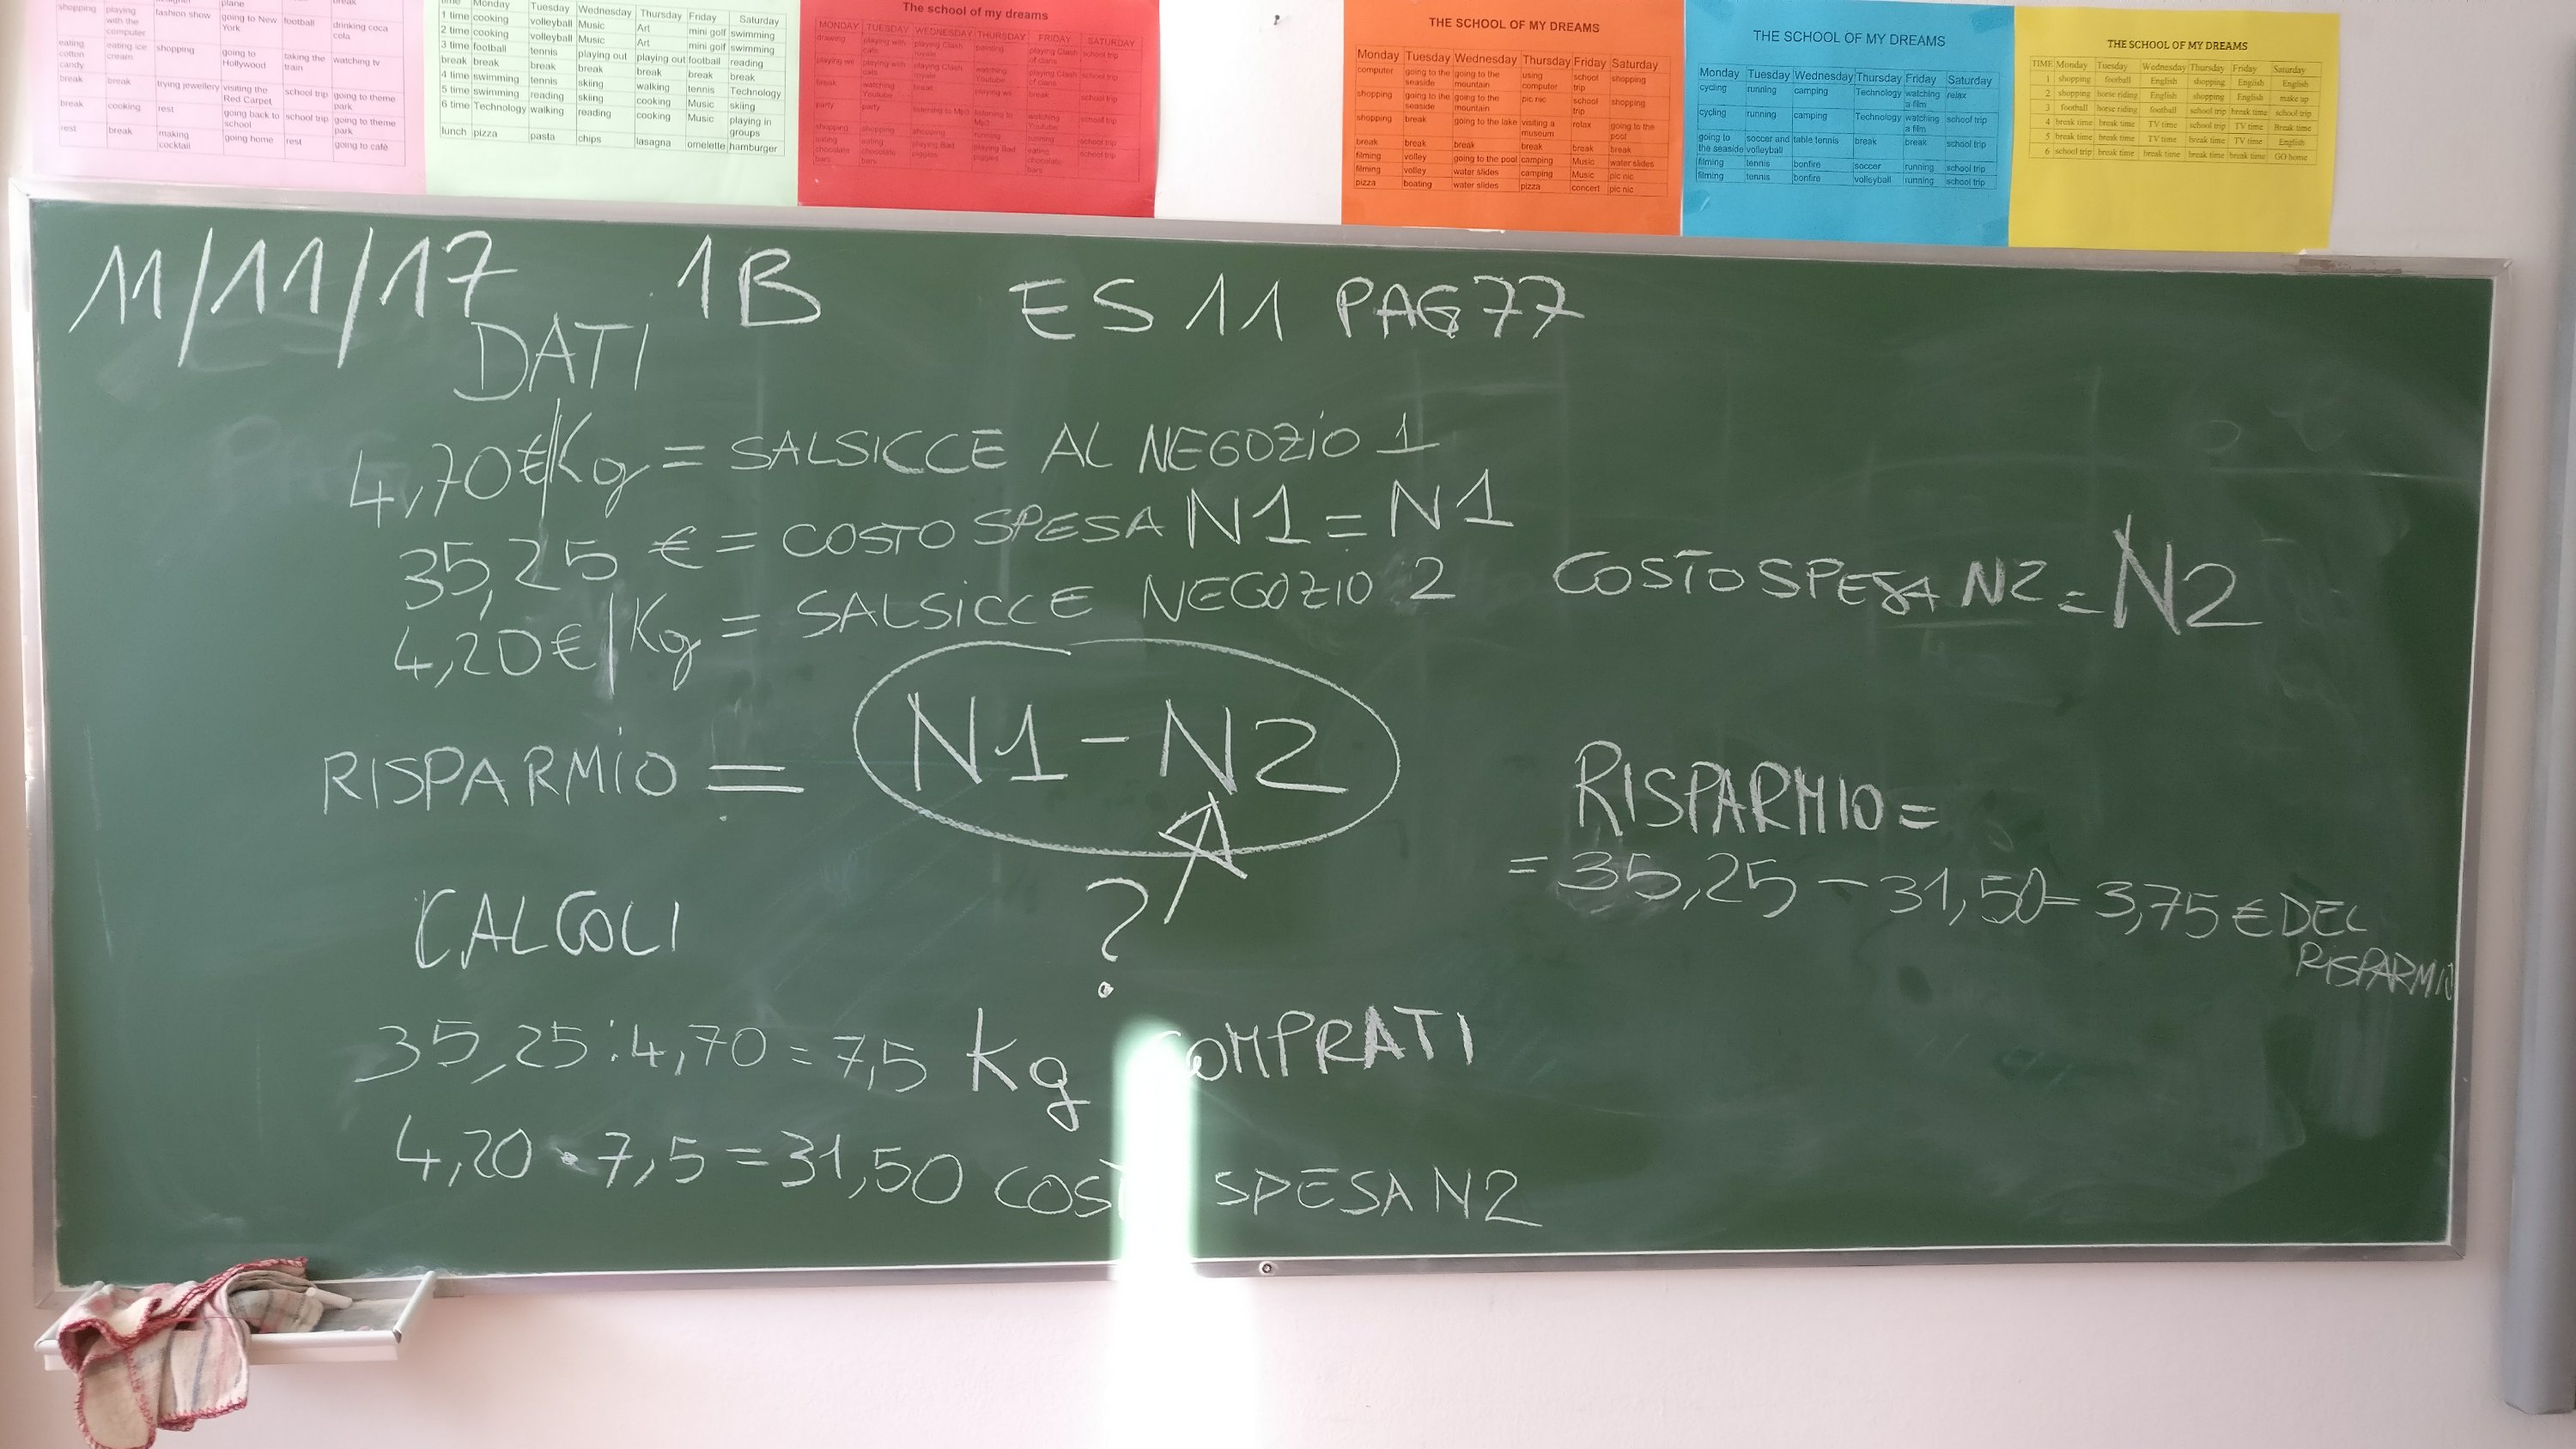 shopping playing with the computer fashion show going to New York football drinking coca cola
eating cotton candy eating ice cream shopping going to Hollywood taking the train watching tv
break break trying jewellery visiting the Red Carpet school trip going to theme park
break cooking rest going back to school school trip going to theme park
rest break making cocktail going home rest going to cafè
time Monday Tuesday Wednesday Thursday Friday Saturday
1 time cooking volleyball Music Art mini golf swimming
2 time cooking volleyball Music Art mini golf swimming
3 time football tennis playing out playing out football reading
break break break break break break break
4 time swimming tennis skiing walking tennis Technology
5 time swimming reading skiing cooking Music skiing
6 time Technology walking reading cooking Music playing in groups
lunch pizza pasta chips lasagna omelette hamburger
The school of my dreams
MONDAY TUESDAY WEDNESDAY THURSDAY FRIDAY SATURDAY
drawing playing with cats playing Clash royale painting playing Clash of clans school trip
playing wii playing with cats playing Clash royale watching Youtube playing Clash of clans school trip
break watching Youtube break playing wii break school trip
party party listening to Mp3 listening to Mp3 watching Youtube school trip
shopping shopping shopping running running school trip
eating chocolate bars eating chocolate bars playing Bad piggies playing Bad piggies eating chocolate bars school trip
THE SCHOOL OF MY DREAMS
Monday Tuesday Wednesday Thursday Friday Saturday
computer going to the seaside going to the mountain using computer school trip shopping
shopping going to the seaside going to the mountain pic nic school trip shopping
shopping break going to the lake visiting a museum relax going to the pool
break break break break break break
filming volley going to the pool camping Music water slides
filming volley water slides camping Music pic nic
pizza boating water slides pizza concert pic nic
THE SCHOOL OF MY DREAMS
Monday Tuesday Wednesday Thursday Friday Saturday
cycling running camping Technology watching a film relax
cycling running camping Technology watching a film school trip
going to the seaside soccer and volleyball table tennis break break school trip
filming tennis bonfire soccer running school trip
filming tennis bonfire volleyball running school trip
THE SCHOOL OF MY DREAMS
TIME Monday Tuesday Wednesday Thursday Friday Saturday
1 shopping football English shopping English English
2 shopping horse riding English shopping English make up
3 football horse riding football school trip break time school trip
4 break time break time TV time school trip TV time Break time
5 break time break time TV time break time TV time English
6 school trip break time break time break time break time GO home
11/11/17 1B ES 11 PAG 77
DATI
4,70€/Kg = SALSICCE AL NEGOZIO 1
35,25 € = COSTO SPESA N1 = N1
4,20€/Kg = SALSICCE NEGOZIO 2
COSTO SPESA N2 = N2
RISPARMIO = N1 - N2
?
CALCOLI
35,25 : 4,70 = 7,5 Kg COMPRATI
4,20 · 7,5 = 31,50 COSTO SPESA N2
RISPARMIO =
= 35,25 - 31,50 = 3,75 € DEL
RISPARMIO